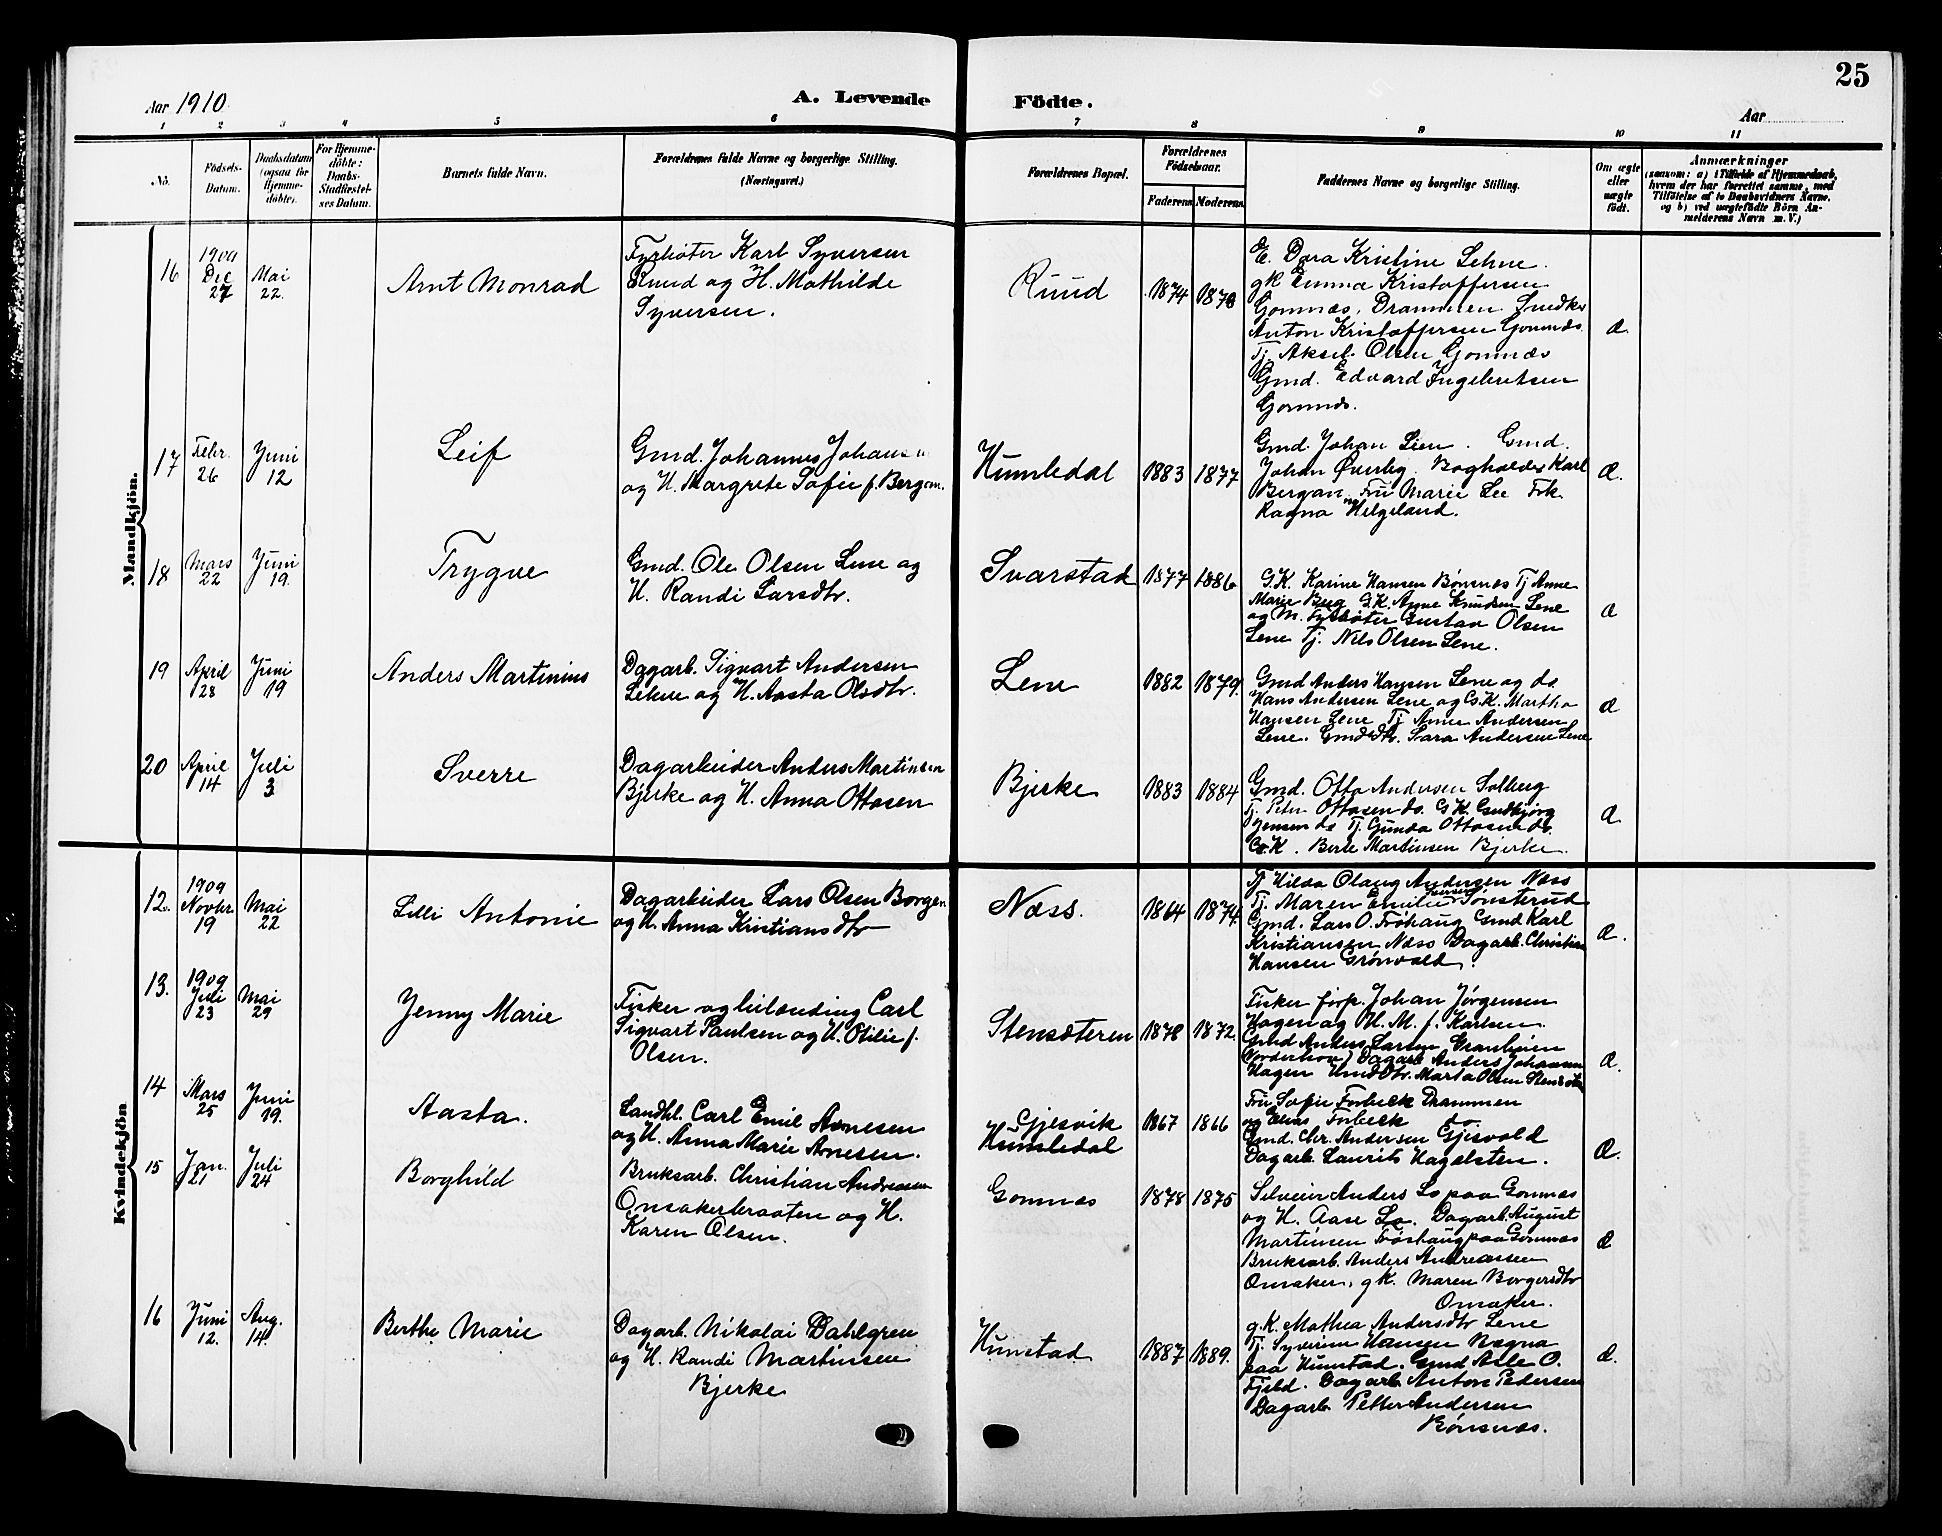 25
Aar 1910.
A. Levende Födte.
Aar
1 2 3 4 5 6 7 8 9 10 11
No.
Födsels-
Datum.
Daabsdatum
(ogsaa for
Hjemme-
döbte).
For Hjemme-
döbte:
Daabs-
Stadfæstel-
ses Datum.
Barnets fulde Navn.
Forældrenes fulde Navne og borgerlige Stilling.
(Næringsvei.)
Forældrenes Bopæl.
Forældrenes
Födselsaar.
Faderens Moderens
Faddernes Navne og borgerlige Stilling.
Om ægte
eller
uægte
födt.
Anmærkninger
(saasom: a) i Tilfælde af Hjemmedaab,
hvem der har forrettet samme, med
Tilföielse af to Daabsvidners Navne,
og b) ved uægtefödte Börn An-
melderens Navn m. V.)
Mandkjön.
16
1909
Dec
27
Mai
22.
Arnt Monrad
Fyrbøter Karl Syversen
Ruud og H. Mathilde
Syversen.
Ruud
1874
1878
E. Dora Kristine Lehne.
gk Emma Kristoffersen
Gomnæs, Drammen. Snedker
Anton Kristoffersen Gomnæs.
Tj. Aksel Olsen Gomnæs
Gmd. Edvard Ingebretsen
Gomnæs.
Æ.
17
Febr.
26
Juni
12
Leif
Gmd. Johannes Johans
og H. Margrete Sofie f. Bergan.
Humledal
1883
1877
Gmd. Johan Lien. Gmd.
Johan Øverby. Bogholder Karl
Bergan. Fru Marie Lee Frk.
Ragna Helgeland.
Æ.
18
Mars
22
Juni
19.
Trygve
Gmd. Ole Olsen Lene og
H. Randi Larsdtr.
Svarstad
1877
1886
G.K. Karine Hansen Bønsnæs Tj Anne
Marie Bug G.K. Anne Knudsen Lene
og M. Fyrbøter Gustav Olsen
Lene Tj. Nils Olsen Lene.
Æ
19
April
28
Juni
19
Anders Martinius
Dagarb. Sigvart Andersen
Lehne og H. Aasta Olsdtr.
Lene
1882
1879.
Gmd Anders Hansen Lene og do
Hans Andersen Lene og G.K. Martha
Hansen Lene Tj Anne Andersen
Lene. Gmdsdtr. Sara Andersen Lene
Æ
20
April
14
Juli
3.
Sverre
Dagarbeider Anders Martinsen
Bjerke og H. Anna Ottosen
Bjerke
1883
1884
Gmd. Otto Andersen Solberg
Tj. Peter Ottosen do. G.K. Gudbjørg
Jensen do Tj. Gunda Ottosen do.
G.K. Berte Martinsen Bjerke.
Æ
Kvindekjön
12.
1909
Novbr
19
Mai
22
Lilli Antonie
Dagarbeider Lars Olsen Borgen
og H. Anna Kristiansdtr
Næss.
1864
1874.
Tj Hilda Olaug Andersen Næss
Tj. Maren Emilie Iversen Tønsterud
Gmd. Lars O. Frøhaug Gmd Karl
Kristiansen Næss Dagarb. Christian
Hansen Grønvold.
Æ.
13.
1909
Juli
23
Mai
29
Jenny Marie
Fisker og Carl
Sigvart Paulsen og H. Otilie f.
Olsen.
Stensæteren
1878
1872.
Fisker forp. Johan Jørgensen
Hagen og H. M. f. Karlsen.
Gmd Anders Larsen Granlien
Norderhov) Dagarb Anders Johannsen
Hagen Hmdtr. Marta Olsen Stensæter
Æ.
14
Mars
25
Juni
19.
Aasta.
Landhl. Carl Emil Arnesen
og H. Anna Marie Arnesen.
Gjesvik
Humledal
1867
1866
Fru Sofie Forbeck Drammen
og Elias Forbeck do.
Gmd. Chr. Andersen Gjesvold
Dagarb. Laurits Hagelsten.
Æ.
15
Jan.
21
Juli
24
Borghild
Bruksarb. Christian Andreassen
Onsakerbraaten og H.
Karen Olsen.
Gomnæs
1878
1875
Selveier Anders Lo paa Gomnæs
og H. Aase Lo. Dagarb. August
Martinsen Frøshaug paa Gomnæs
Bruksarb. Anders Andreassen
Onsaker, gk. Maren Borgersdtr
Onsaker.
Æ
16
Juni
12.
Aug.
14.
Berthe Marie
Dagarb. Nikolai Dahlgren
og H. Randi Martinsen
Bjerke
Hunstad
1887
1889.
g.K. Mathea Andersdtr Lene
Tj. Syverine Hansen Nægna
paa Hunstad. Gmd Asle O.
Fjeld. Dagarb. Anton Pedersen
Dagarb. Petter Andersen
Bønsnæs.
Æ.